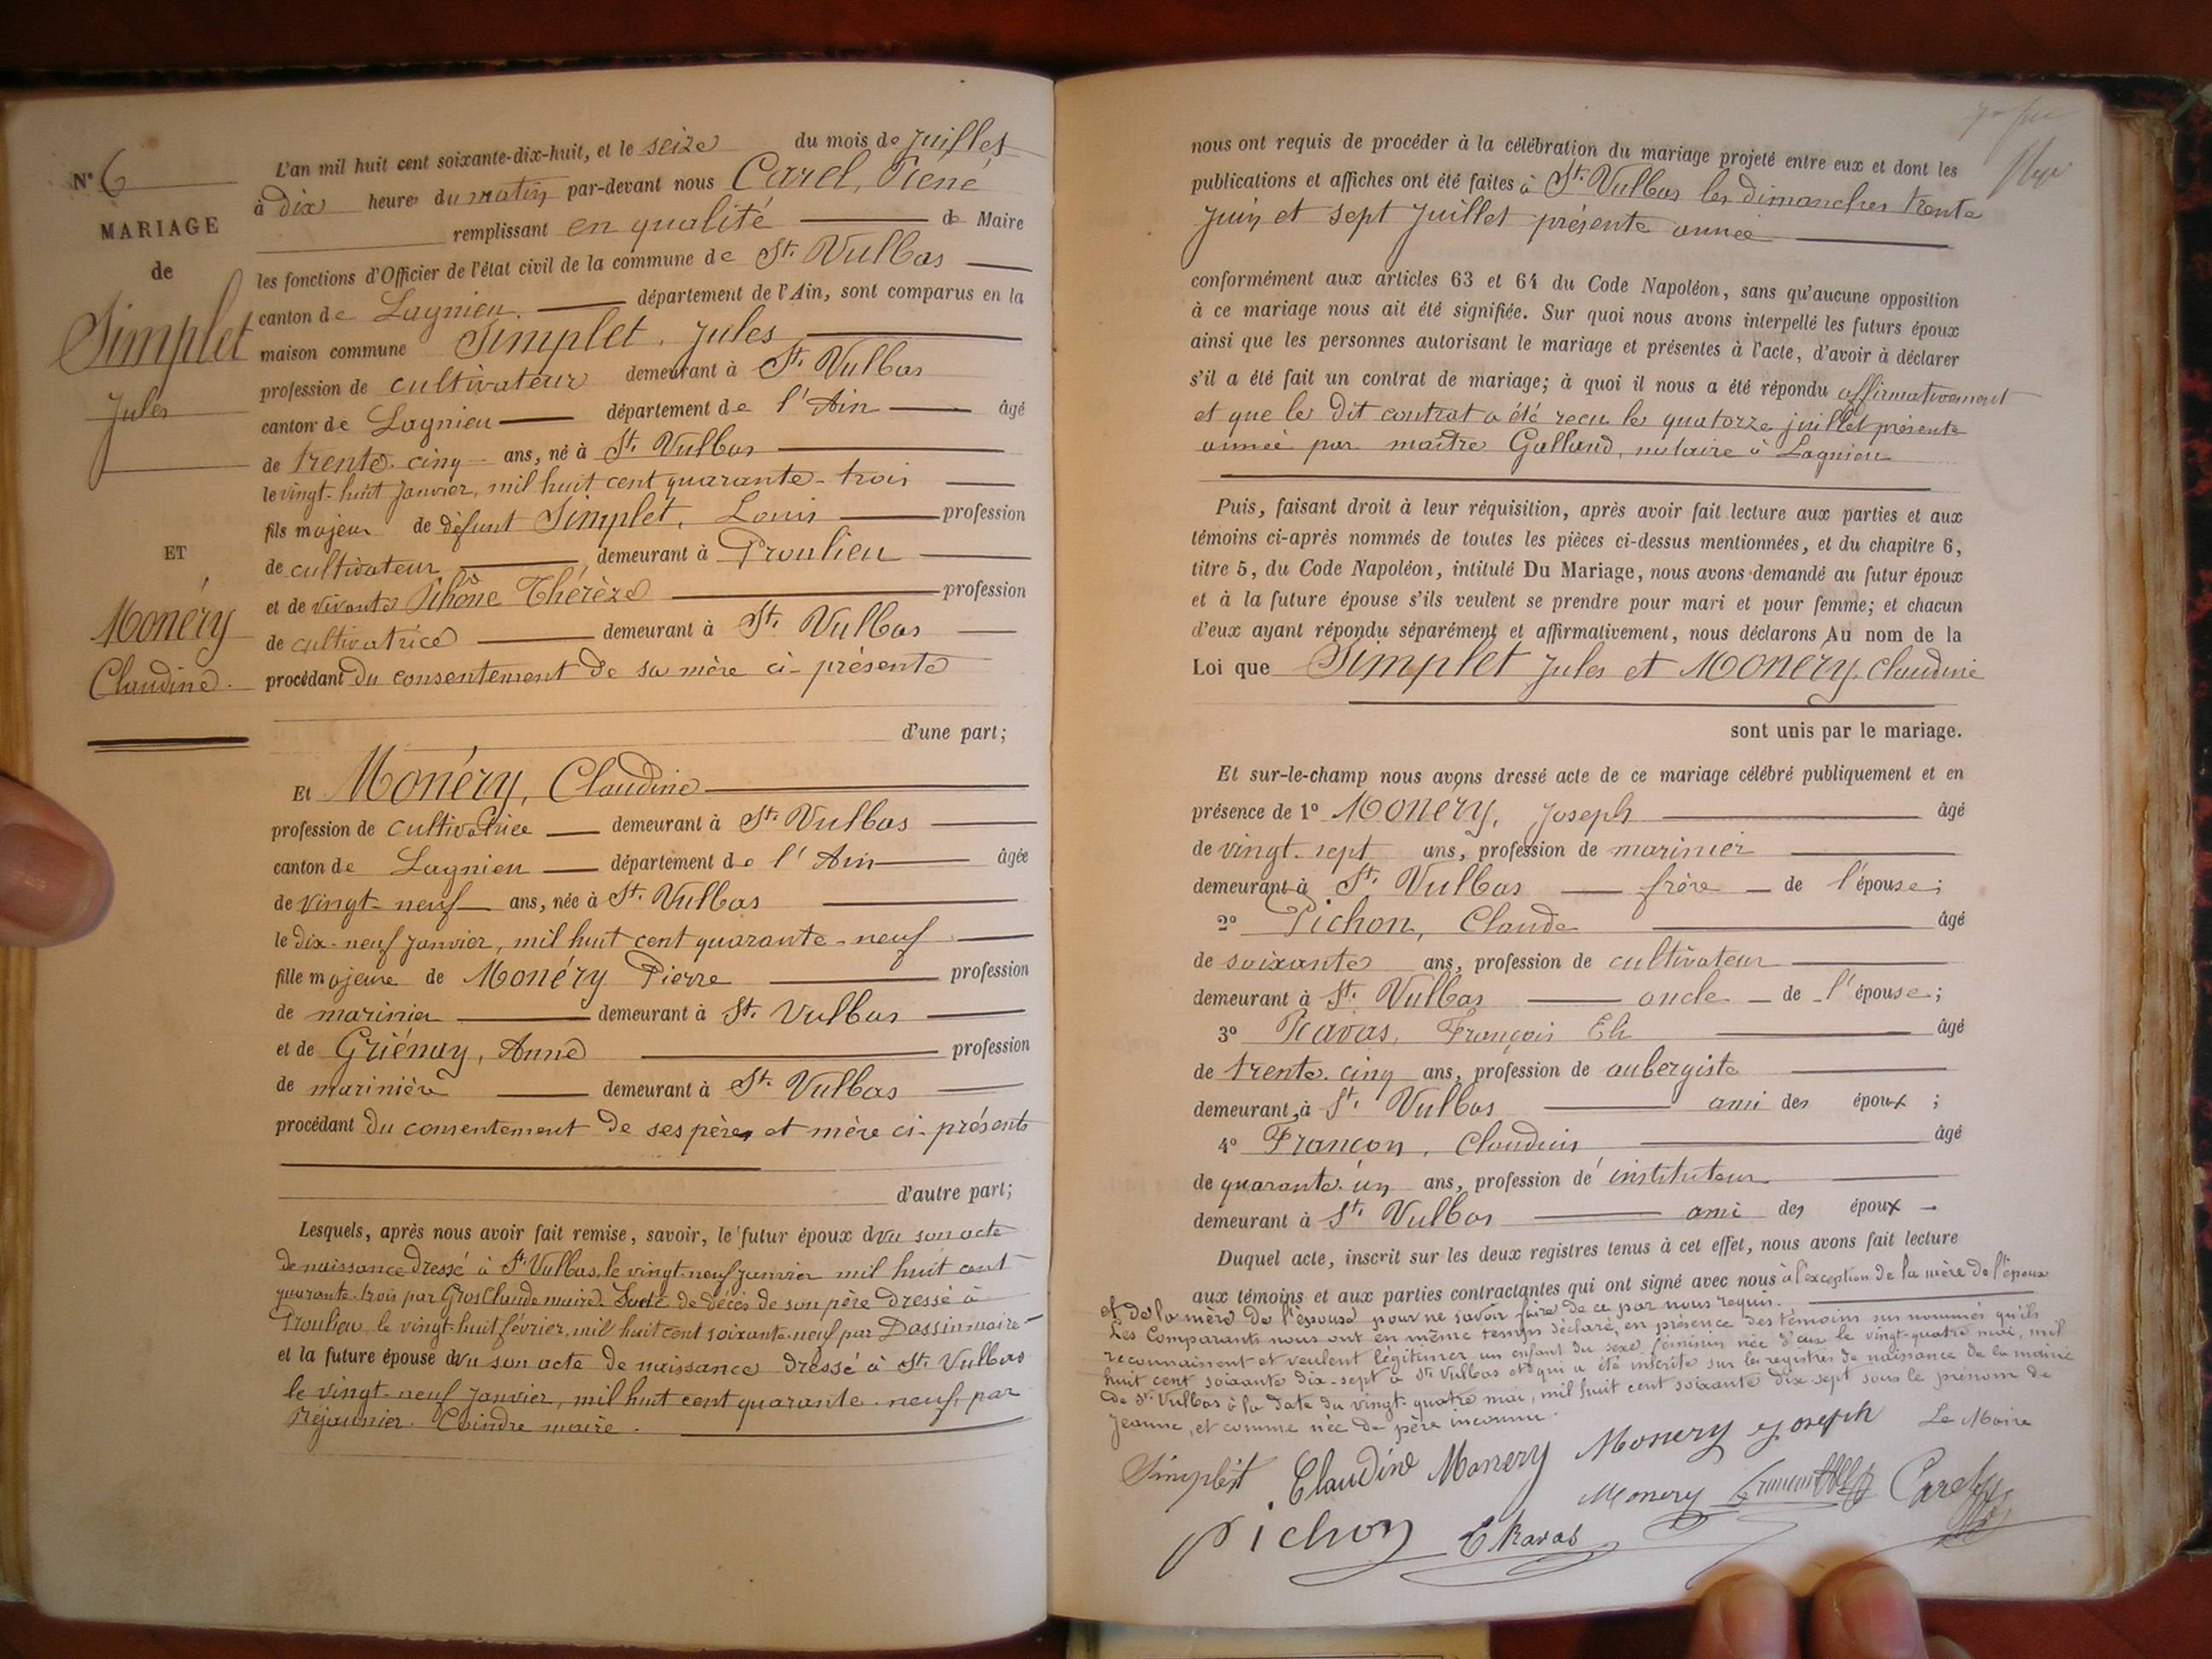 N° 6
MARIAGE
de
Simplet
Jules
ET
Monéry
Claudine.
L'an mil huit cent soixante-dix-huit, et le seize du mois de juillet
à dix heures du matin par-devant nous Carel, René
remplissant en qualité de Maire
les fonctions d'Officier de l'état civil de la commune de St. Vulbas
canton de Lagnieu. département de l'Ain, sont comparus en la
maison commune Simplet, Jules
profession de cultivateur demeurant à St. Vulbas
canton de Lagnieu département de l'Ain âgé
de trente-cinq ans, né à St. Vulbas
le vingt-huit janvier, mil huit cent quarante-trois
fils majeur de défunt Simplet, Louis profession
de cultivateur demeurant à Proulieu
et de vivante Thérèze profession
de cultivatrice demeurant à St. Vulbas
procédant du consentement de sa mère ci-présente
d'une part;
Et Monéry, Claudine
profession de cultivatrice demeurant à St. Vulbas
canton de Lagnieu département de l'Ain âgée
de vingt-neuf ans, née à St. Vulbas
le dix-neuf janvier, mil huit cent quarante-neuf
fille majeure de Monéry Pierre profession
de marinier demeurant à St. Vulbas
et de Griénay, Anne profession
de marinière demeurant à St. Vulbas
procédant du consentement de ses père et mère ci-présents
d'autre part;
Lesquels, après nous avoir fait remise, savoir, le futur époux son acte
de naissance dressé à St. Vulbas, le vingt-neuf janvier mil huit cent
quarante-trois par Gros Claude maire. L'acte de décès de son père dressé à
Proulieu, le vingt-huit février, mil huit cent soixante-neuf par Dassin maire
et la future épouse son acte de naissance dressé à St. Vulbas
le vingt-neuf janvier, mil huit cent quarante-neuf, par
Réjaunier. Coindre maire.
nous ont requis de procéder à la célébration du mariage projeté entre eux et dont les
publications et affiches ont été faites à St. Vulbas les dimanches trente
juin et sept juillet présente année
conformément aux articles 63 et 64 du Code Napoléon, sans qu'aucune opposition
à ce mariage nous ait été signifiée. Sur quoi nous avons interpellé les futurs époux
ainsi que les personnes autorisant le mariage et présentes à l'acte, d'avoir à déclarer
s'il a été fait un contrat de mariage; à quoi il nous a été répondu affirmativement
et que le dit contrat a été reçu le quatorze juillet présente
année par maître Galland, notaire à Lagnieu
Puis, faisant droit à leur réquisition, après avoir fait lecture aux parties et aux
témoins ci-après nommés de toutes les pièces ci-dessus mentionnées, et du chapitre 6,
titre 5, du Code Napoléon, intitulé Du Mariage, nous avons demandé au futur époux
et à la future épouse s'ils veulent se prendre pour mari et pour femme; et chacun
d'eux ayant répondu séparément et affirmativement, nous déclarons Au nom de la
Loi que Simplet Jules et Monéry, Claudine
sont unis par le mariage.
Et sur-le-champ nous avons dressé acte de ce mariage célébré publiquement et en
présence de 1° Monéry, Joseph âgé
de vingt-sept ans, profession de marinier
demeurant à St. Vulbas frère de l'épouse;
2° Pichon, Claude âgé
de soixante ans, profession de cultivateur
demeurant à St. Vulbas oncle de l'épouse;
3° Ravas, François Eli âgé
de trente-cinq ans, profession de aubergiste
demeurant à St. Vulbas ami des époux;
4° Françon, Claudius âgé
de quarante-un ans, profession de instituteur
demeurant à St. Vulbas ami des époux
Duquel acte, inscrit sur les deux registres tenus à cet effet, nous avons fait lecture
aux témoins et aux parties contractantes qui ont signé avec nous à l'exception de la mère de l'époux
et de la mère de l'épouse pour ne savoir faire de ce par nous requis.
Les comparants nous ont en même temps déclaré, en présence des témoins sus nommés qu'ils
reconnaissent et veulent légitimer un enfant du sexe féminin née d'eux le vingt-quatre mai, mil
huit cent soixante dix-sept à St. Vulbas et qui a été inscrite sur les registres de naissance de la mairie
de St. Vulbas à la date du vingt-quatre mai, mil huit cent soixante dix-sept sous le prénom de
Jeanne, et comme née de père inconnu.
Simplet Claudine Monery Monery Joseph Le Maire
Monery Carel
Pichon E Ravas